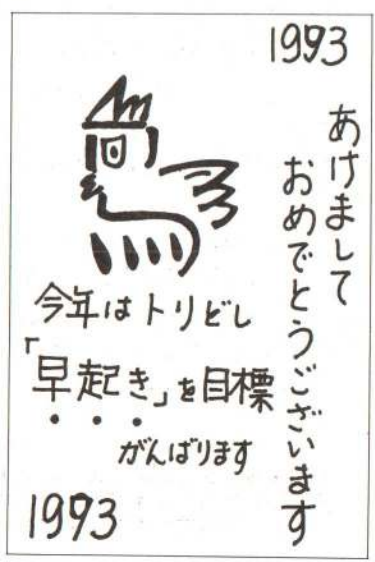 1993
あけまして
おめでとうございます
今年はトリどし
「早起き」を目標
がんばります
1993